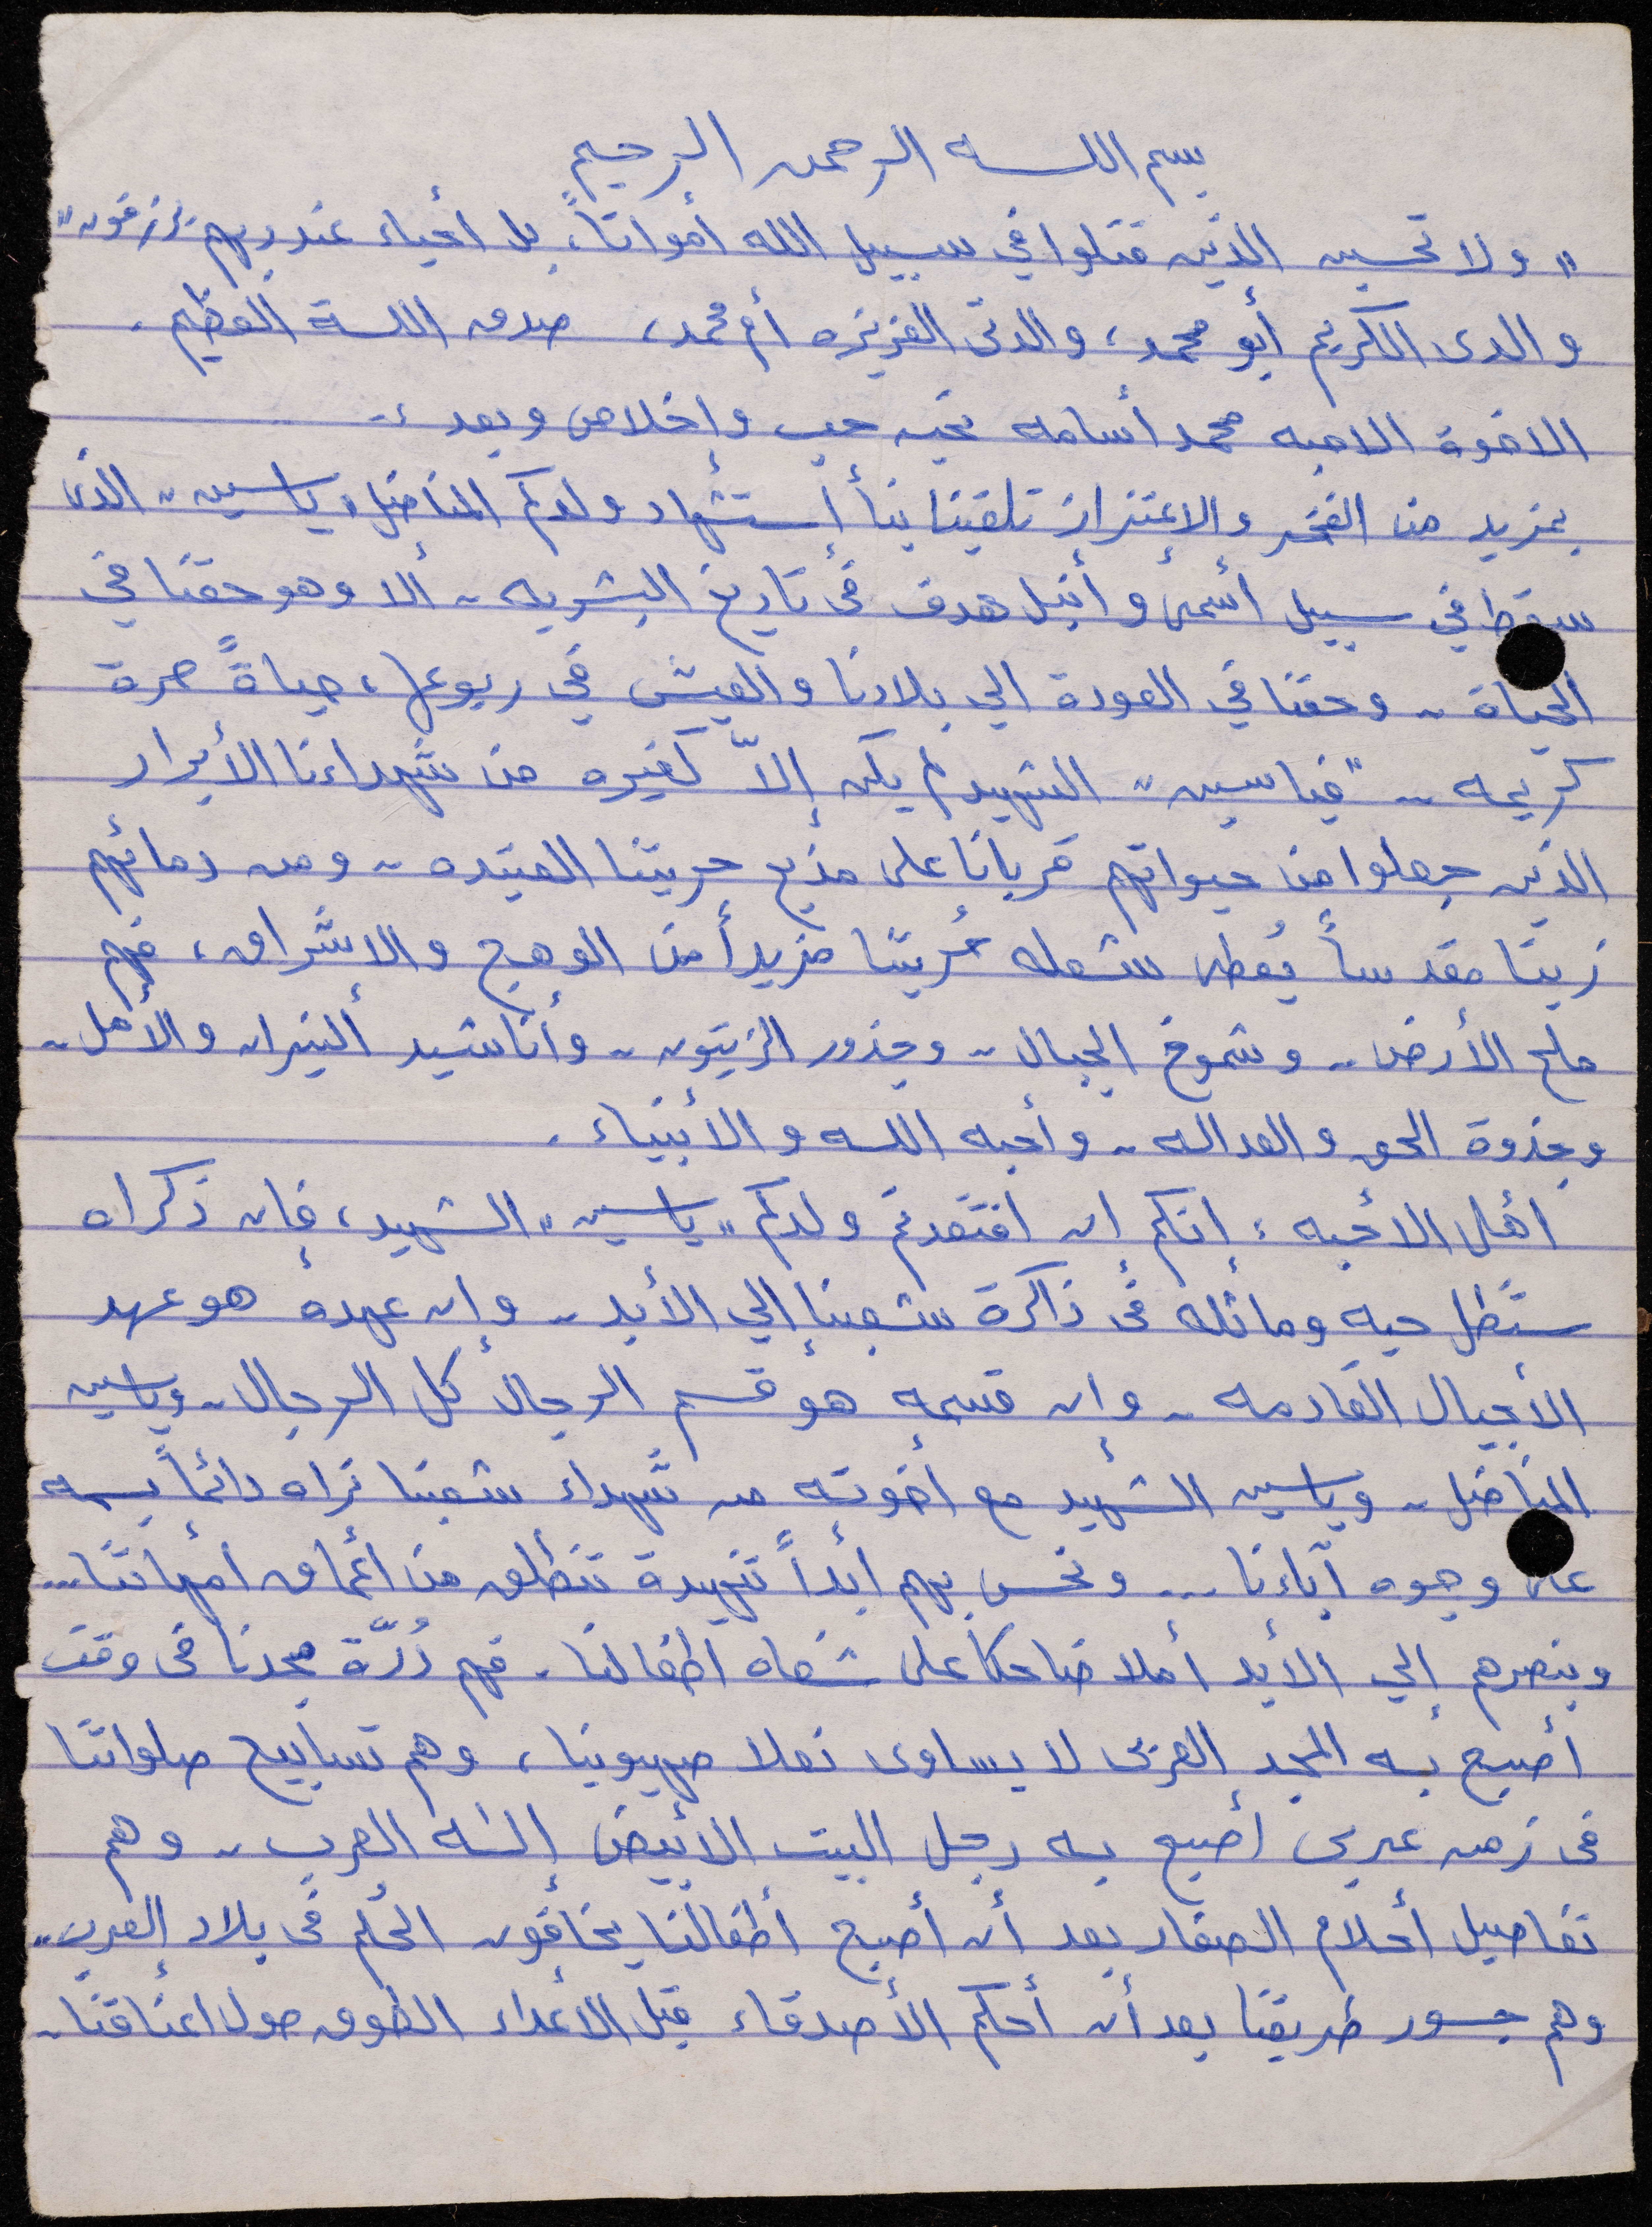 بسم اللــه الرحمن الرحيم
"ولا تحسبن الذين قتلوا في سبيل الله أمواتاً، بل أحياء عند ربهم يرزقون"
والدى الكريم أبو محمد، والدتى العزيزه أم محمد، صدق اللــه العظيم.
الاخوة الاحبه محمد أسامه تحيه حب وإخلاص وبعد :-
بمزيد من الفخر والإعتزاز تلقينا نبأ أستشهاد ولدكم المناضل "ياسين" الذى
سقط في سبيل أسمى وأنبل هدف فى تاريخ البشريه.. ألا وهو حقنا في
الحياة.. وحقنا في العودة الي بلادنا والعيش في ربوعها، حياةً حرة
كريمه.. "فياسين" الشهيد لم يكن إلاّ كغيره من شهداءنا الأبرار
الذين جعلوا من حيواتهم قرباناً على مذبح حريتنا العتيده.. ومن دمائهم
زيتا مقدساً يُعطى شعله حُريتنا مزيداً من الوهج والاشراق، فهم
ملح الأرض.. وشموخ الجبال.. وجذور الزيتون.. وأناشيد النيران والأمل..
وجذوة الحق والعداله.. وأحبه اللــه والأنبياء.
أهلى الأحبه : إنكم إن افتقدتم ولدكم "ياسين" الشهيد، فإن ذكراه
ستظل حيه وماثله فى ذاكرة شعبنا إلي الأبد.. وإن عهده هو عهد
الأجيال القادمه.. وإن قسمه هو قسم الرجال كل الرجال.. وياسين
المناضل.. وياسين الشهيد مع أخوته من شهداء شعبنا نراه دائماً بسمه
على وجوه آباءنا... ونحس بهم أبداً تنهيدة تنطلق من أعماق أمهاتنا...
وبنصرهم إلي الأبد أملا ضاحكا على شفاه اطفالنا. فهم دُرّة مجدنا فى وقت
أصبح به المجد العربى لا يساوى نعلا صهيونيا، وهم تسابيح صلواتنا
فى زمن عربى أصبح به رجل البيت الأبيض إلــه العرب.. وهم
تفاصيل أحلام الصغار بعد أن أصبح أطفالنا يخافون الحُلم فى بلاد العرب..
وهم جسور طريقنا بعد أن أحكم الأصدقاء قبل الأعداء الطوق حول اعناقنا..